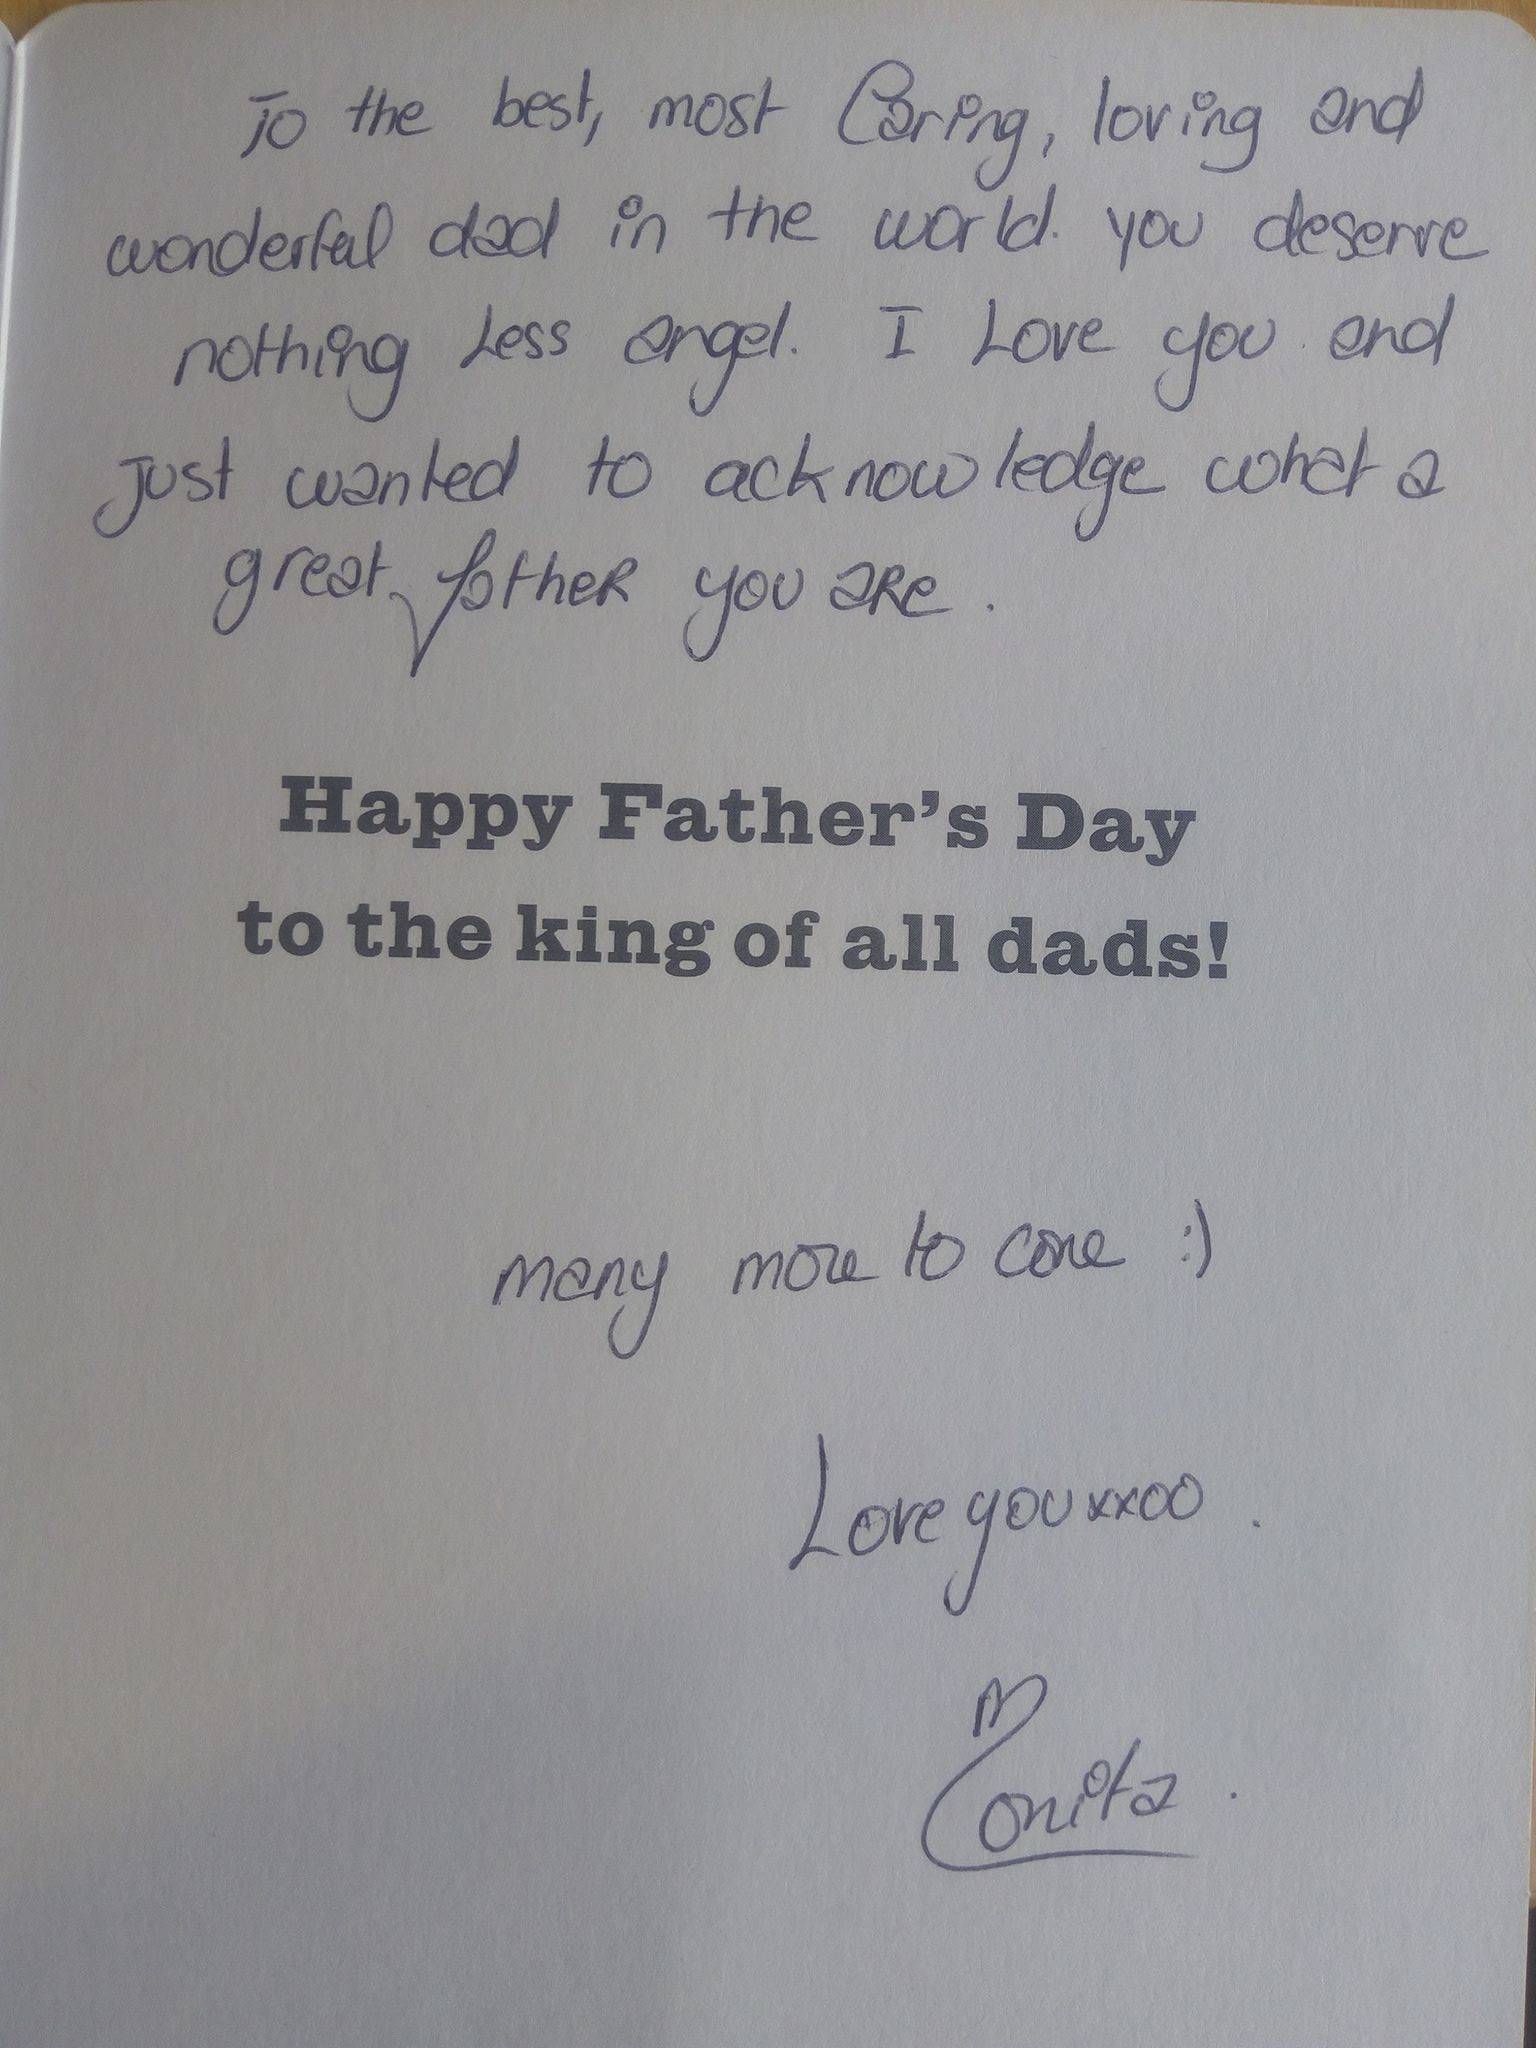 To the best, most Caring, loving and
wonderful dad in the world. you deserve
nothing Less angel. I Love you and
just wanted to acknowledge what a
great father you are.
Happy Father's Day
to the king of all dads!
many more to come :)
Love you xxoo.